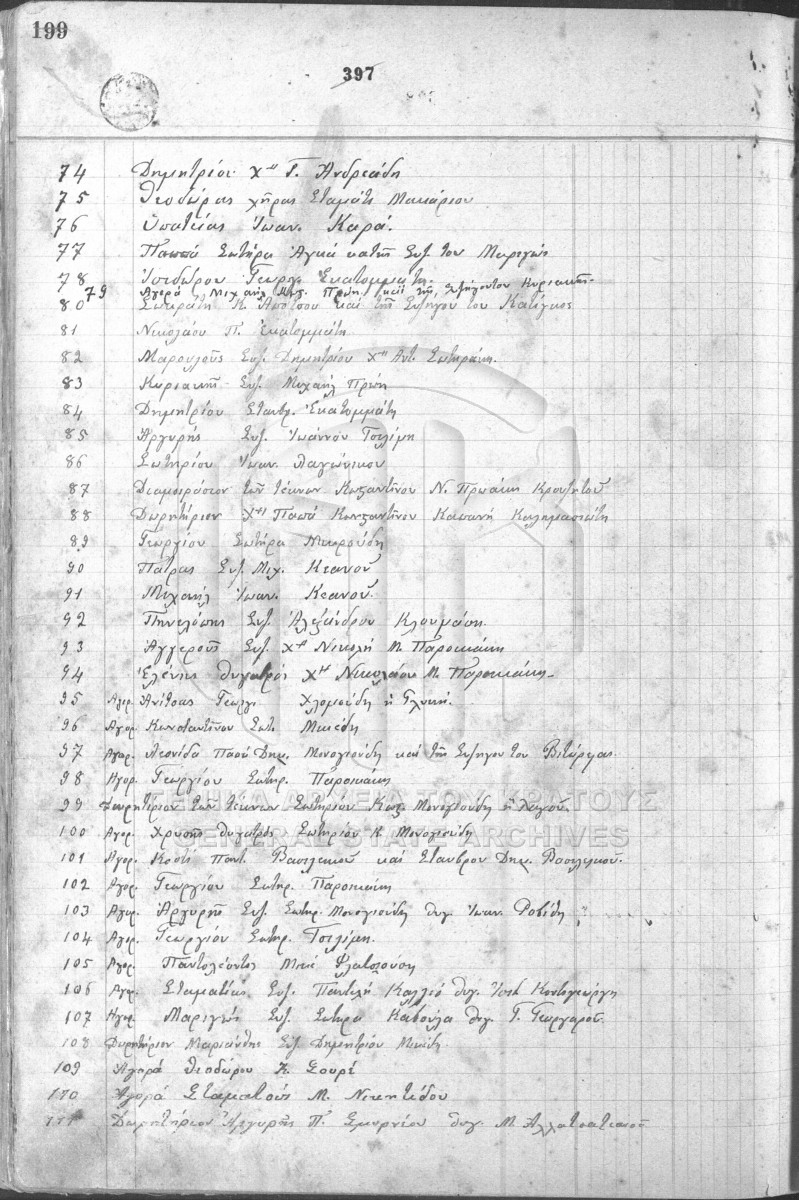 199
397
74 Δημητρίου Χ" Γ. Ανδρεάδη
75 Θεοδώρας χήρας Σταμάτη Μακάριου
76 Υπατείας Ιωαν. Καρά.
77 Παππά Σωτήρα και της Συζ. του Μαριγώς
78 Ισιδώρου Γεωργ. Εκατομμάτη.
79 Αγορά Μιχαήλ Πρώη και της συζύγου του Κυριακής
80 Σωκράτη Κ. και της Συζύγου του Κατίγκως
81 Νικολάου Π. Εκατομμάτη
82 Μαρουλούς Συζ. Δημητρίου Χ" Αντ. Σωτηράκη.
83 Κυριακής Συζ. Μιχαήλ Πρώη
84 Δημητρίου Σταυρ. Εκατομμάτη
85 Αργυρής Συζ. Ιωάννου Τσιλίμη
86 Σωτηρίου Ιωαν. Λαγώνικου
87 των τέκνων Κωνσταντίνου Ν. Πρωάκη
88 Δωρητήριον Χ" Παπά Κωνσταντίνου Καπανή Καλημασιώτη
89 Γεωργίου Σωτήρα Μικρούδη
90 Πάτρας Συζ. Μιχ. Κεανού
91 Μιχαήλ Ιωαν. Κεανού.
92 Πηνελόπης Συζ. Αλεξάνδρου Κλουμάση.
93 Αγγερούς Συζ. Χ" Νικολή Μ. Παροικάκη
94 Ελένης θυγατρός Χ" Νικολάου Μ. Παροικάκη
95 Αγορ. Ανίτσας Γεωργ. Χλομούδη ή Γλυκή.
96 Αγορ. Κωνσταντίνου Σωτ. Μικέδη
97 Αγορ. Λεονίδα Παπά Δημ. Μονογιούδη και της Συζύγου του Βιτώριας
98 Αγορ. Γεωργίου Σωτηρ. Παροικάκη
99 Δωρητήριον των τέκνων Σωτηρίου Κωνσ. Μονογιούδη ή Λαγού.
100 Αγορ. Χρυσής θυγατρός Σωτηρίου Κ. Μονογιούδη
101 Αγορ. Κωστή Παντ. Βασιλικού και Σταύρου Δημ. Βασιλικού.
102 Αγορ. Γεωργίου Σωτηρ. Παροικάκη
103 Αγορ. Αργυρής Συζ. Σωτηρ. Μονογιούδη θυγ. Ιωαν. Ροβίδη
104 Αγορ. Γεωργίου Σωτηρ. Τσιλίμη.
105 Αγορ. Παντολέοντος Μικέ
106 Αγορ. Σταματίας Συζ. Παντελή Καλλιό θυγ. Κοντογεώργη
107 Αγορ. Μαριγώς Συζ. Σωτήρα Καβούλα θυγ. Γ. Γεωργαρού
108 Δωρητήριον Μαριάνθης Συζ. Δημητρίου Μικέδη
109 Αγορά Θεοδώρου Κ. Σουρέ
110 Αγορά Σταματούς Μ. Νικητίδου
111 Δωρητήριον Αργυρής Π. Σμυρνίου θυγ. Μ. Αλλατσατιανού
ΓΕΝΙΚΑ ΑΡΧΕΙΑ ΤΟΥ ΚΡΑΤΟΥΣ
GENERAL STATE ARCHIVES